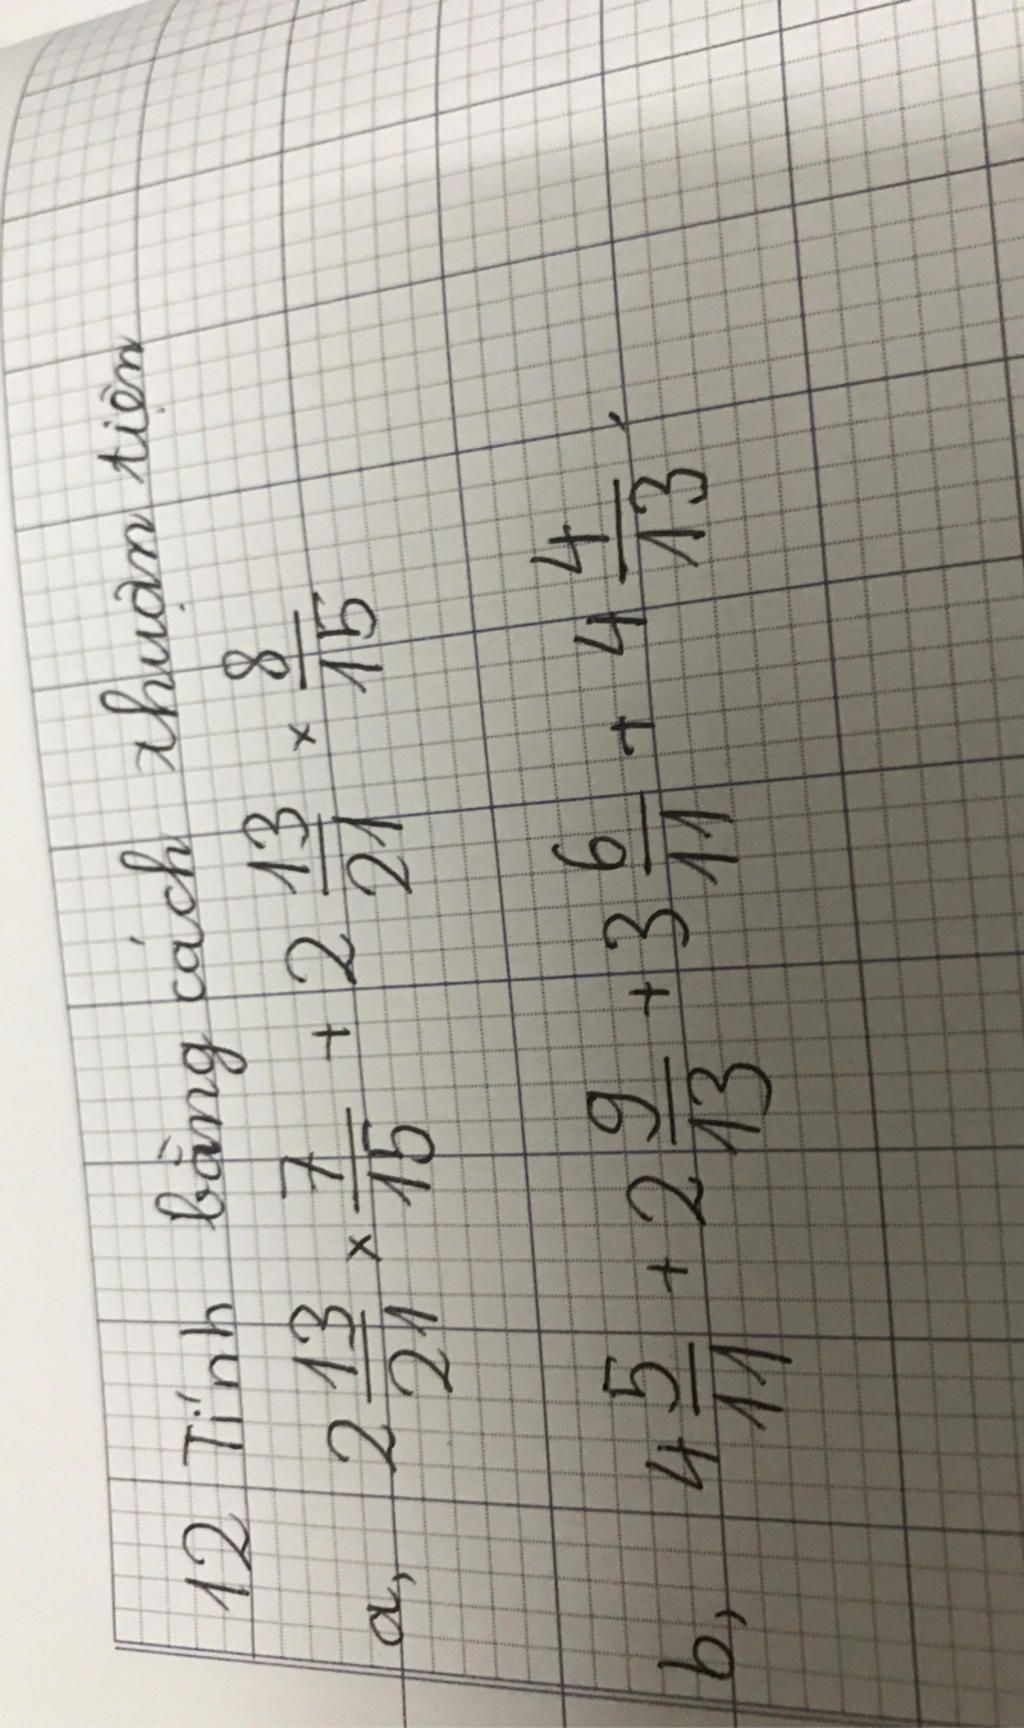 12 Tính bằng cách thuận tiện
a, 2 13/21 × 7/15 + 2 13/21 × 8/15
b, 4 5/11 + 2 9/13 + 3 6/11 + 4 4/13